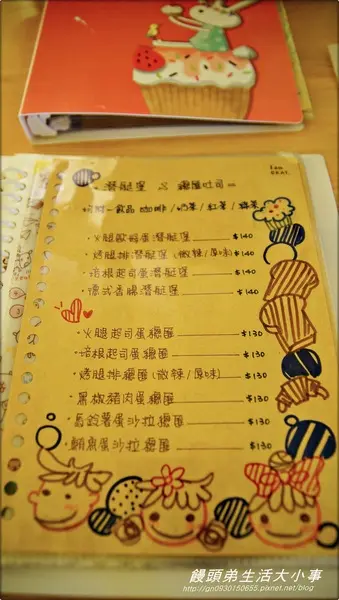 潛艇堡 & 貓匯吐司
附贈-飲品 咖啡/奶茶/紅茶/綠茶
·火腿歐姆蛋潛艇堡 $140
·烤腿排潛艇堡(微辣/原味) $140
·培根起司蛋潛艇堡 $140
·德式香腸潛艇堡 $140
·火腿起司蛋貓匯 $130
·培根起司蛋貓匯 $130
·烤腿排貓匯(微辣/原味) $130
·黑椒豬肉蛋貓匯 $130
·馬鈴薯蛋沙拉貓匯 $130
·鮪魚蛋沙拉貓匯 $130
饅頭弟生活大小事
http://gn0930150655.pixnet.net/blog